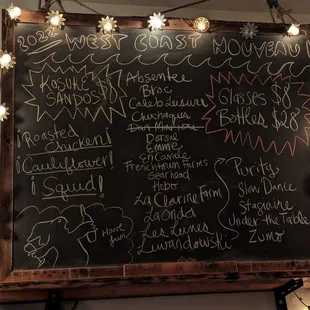 2022 WEST COAST NOUVEAU
KATSUKE
SANDOS $
¡Roasted
Chicken!
¡Cauliflower!
¡Squid!
Have fun!
Absentee
Broc
Caleb Leisure
Chuchaquis
Dan Marioni
Dorsal
Emme
Encavale
Frenchtown Farms
Gearhead
Hobo
La Clarine Farm
La Onda
Les Lunes
Lewandowski
Glasses $8
Bottles $28
Purity
Slow Dance
Stagiaire
Under the Table
Zumo